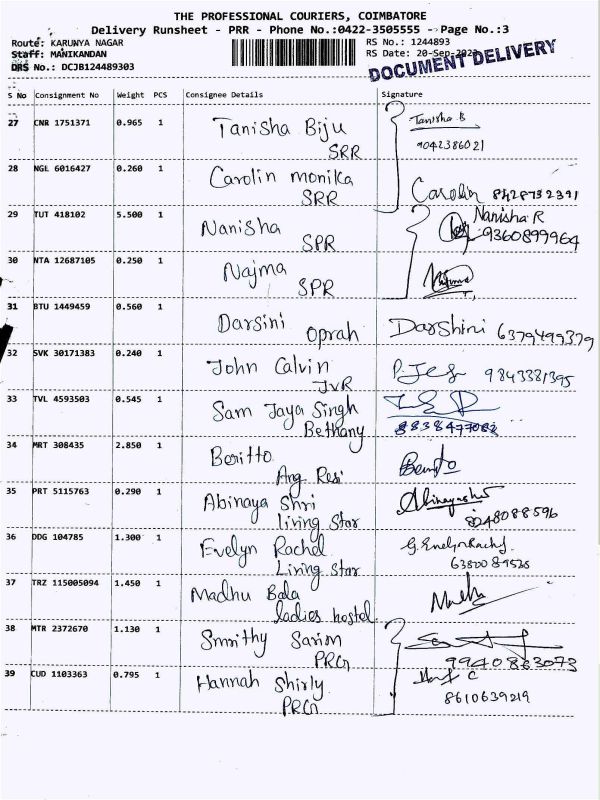 THE PROFESSIONAL COURIERS, COIMBATORE
Delivery Runsheet - PRR - Phone No.:0422-3505555 - Page No.:3
Route: KARUNYA NAGAR
RS No.: 1244893
Staff: MANIKANDAN
RS Date: 20-Sep-
DRS No.: DCJB124489303
DOCUMENT DELIVERY
S No Consignment No Weight PCS Consignee Details Signature
27 CNR 1751371 0.965 1 Tanisha Biju Tanisha B
SRR 9042386021
28 NGL 6016427 0.260 1 Carolin monika
SRR Carolin 8428732391
29 TUT 418102 5.500 1 Nanisha Nanisha R
SPR 9360899964
30 NTA 12687105 0.250 1 Najma
SPR
31 BTU 1449459 0.560 1 Darsini Oprah Darshini 6379499379
32 SVK 30171383 0.240 1 John Calvin
JVR 9843381395
33 TVL 4593503 0.545 1 Sam Jaya Singh
Bethany 8838477082
34 MRT 308435 2.850 1 Beritto
Ang Resi
35 PRT 5115763 0.290 1 Abinaya Shri
Living Star 8248088596
36 DDG 104785 1.300 1 Evelyn Rachel G. Evelyn Rachel
Living Star 6380089528
37 TRZ 115005094 1.450 1 Madhu Bala
ladies hostel
38 MTR 2372670 1.130 1 Smrithy
PRG 9940883073
39 CUD 1103363 0.795 1 Hannah Shirly
PRG 8610639219